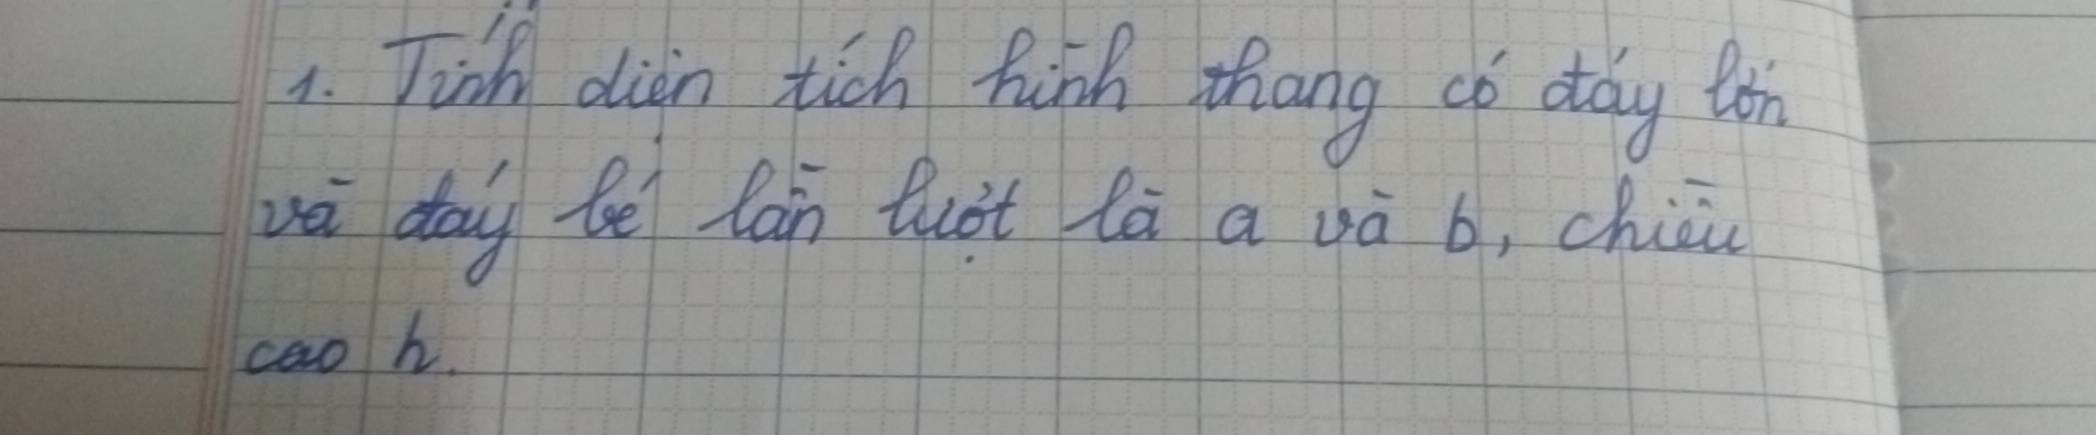 1. Tính diện tích hình thang có đáy lớn
và đáy bé lần lượt là a và b, chiều
cao h.